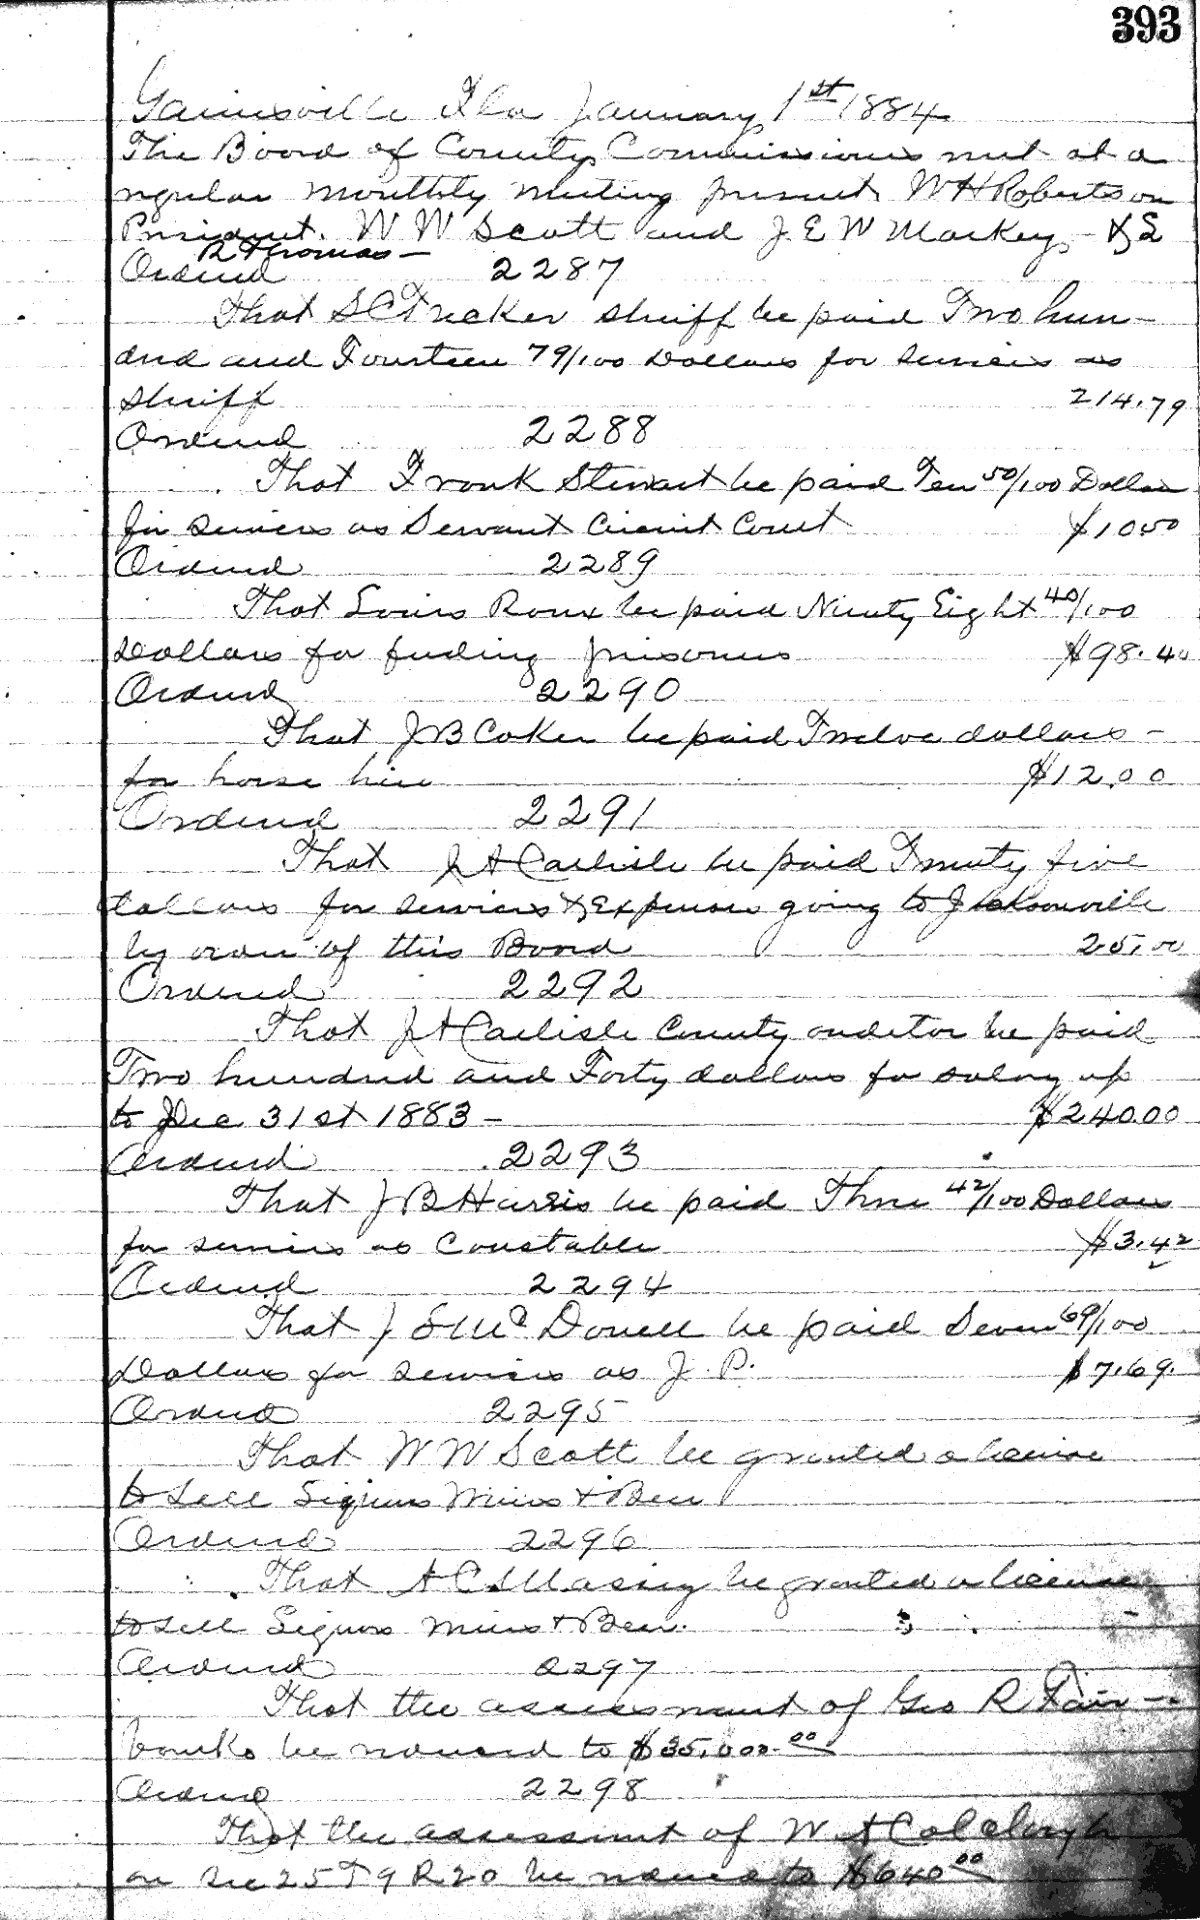 393
Gainesville Fla January 1st 1884
The Board of County Commissioners met at a
regular monthly meeting present W H Robertson
President. W W Scott and J E W Markey - & E
R Thomas -
Ordered 2287
That S C Tucker sheriff be paid Two hun-
dred and Fourteen 79/100 Dollars for services as
Sheriff 214.79
Ordered 2288
That Frank Stewart be paid Ten 50/100 Dollars
for services as Servant Circuit Court $10.50
Ordered 2289
That Louis Roux be paid Ninety Eight 40/100
Dollars for feeding prisoners $98.40
Ordered 2290
That J B Coker be paid Twelve dollars -
for horse hire $12.00
Ordered 2291
That J A Carlisle be paid Twenty five
dollars for services & Expenses going to Jacksonville
by order of this Board 25.00
Ordered 2292
That J A Carlisle County auditor be paid
Two hundred and Forty dollars for salary up
to Dec 31st 1883 - $240.00
Ordered 2293
That J B Harris be paid Three 42/100 Dollars
for services as Constable $3.42
Ordered 2294
That J S McDonell be paid Seven 69/100
Dollars for services as J. P. $7.69.
Ordered 2295
That W W Scott be granted a license
to sell Liquors Wines & Beer
Ordered 2296
That A C Massey be granted a license
to sell Liquors Wines & Beer.
Ordered 2297
That the assessment of Geo R Fair-
banks be reduced to $35,000.00
Ordered 2298
That the assessment of W A Colclough
on Sec 25 T 9 R 20 be reduced to $640.00